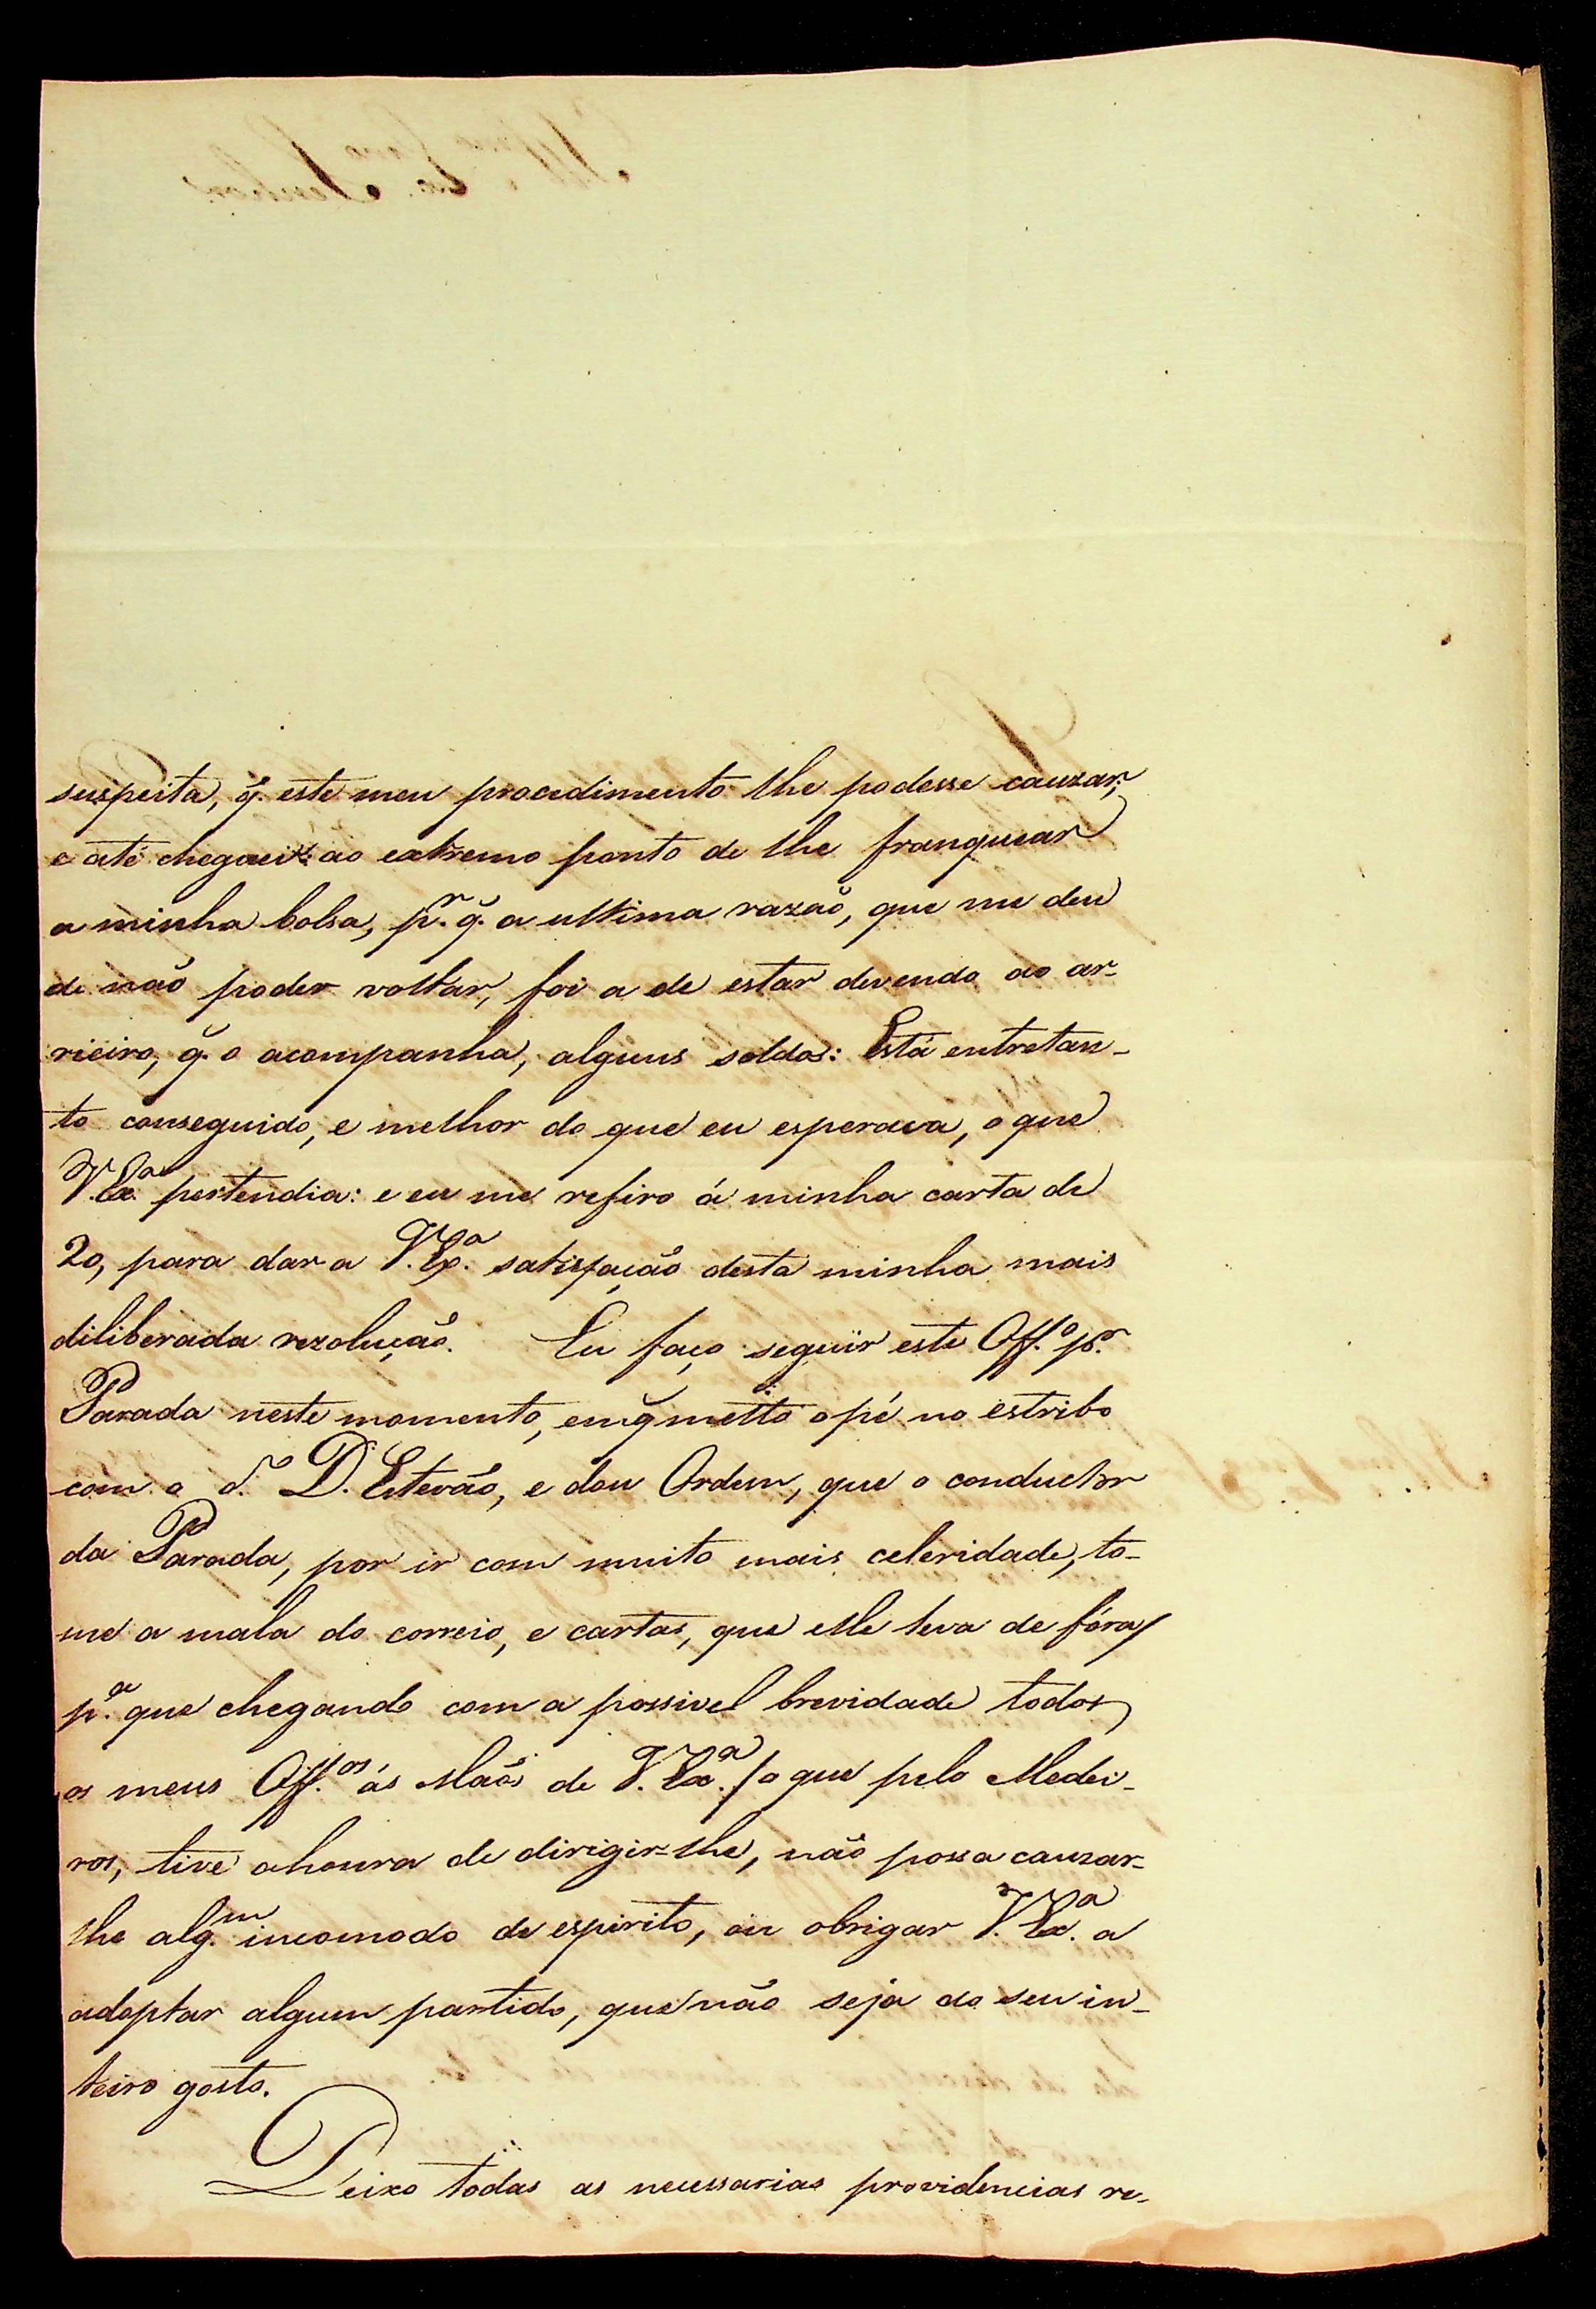 suspeita, q̃. este meu procedimento lhe podesse cauzar;
e até cheguei ao extremo ponto de lhe franquear
a minha bolsa, p.r q̃. a ultima razaõ, que me deu
de naõ poder voltar, foi a de estar devendo ao ar-
rieiro, q̃. o acompanha, alguns soldos: Está entretan-
to conseguido, e melhor do que eu esperava, o que
V. Ex.a pertendia: e eu me refiro á minha carta de
20, para dar a V. Ex.a satisfação desta minha mais
diliberada rezolução. Eu faço seguir este Off.o p.r
Parada neste momento, em q̃ metto o pé no estribo
com o d.o D. Estevão, e dou Ordem, que o conductor
da Parada, por ir com muito mais celeridade, to-
me a mala do correio, e cartas, que elle leva de fóra,
p.a que chegando com a possivel brevidade todos
os meus Off.os ás Maõs de V. Ex.a / o que pelo Medei-
ros, tive a honra de dirigir-lhe, não possa cauzar-
lhe alg.m incomodo de espirito, ou obrigar V. Ex.a a
adoptar algum partido, que não seja do seu in-
teiro gosto.
Deixo todas as necessarias providencias re-